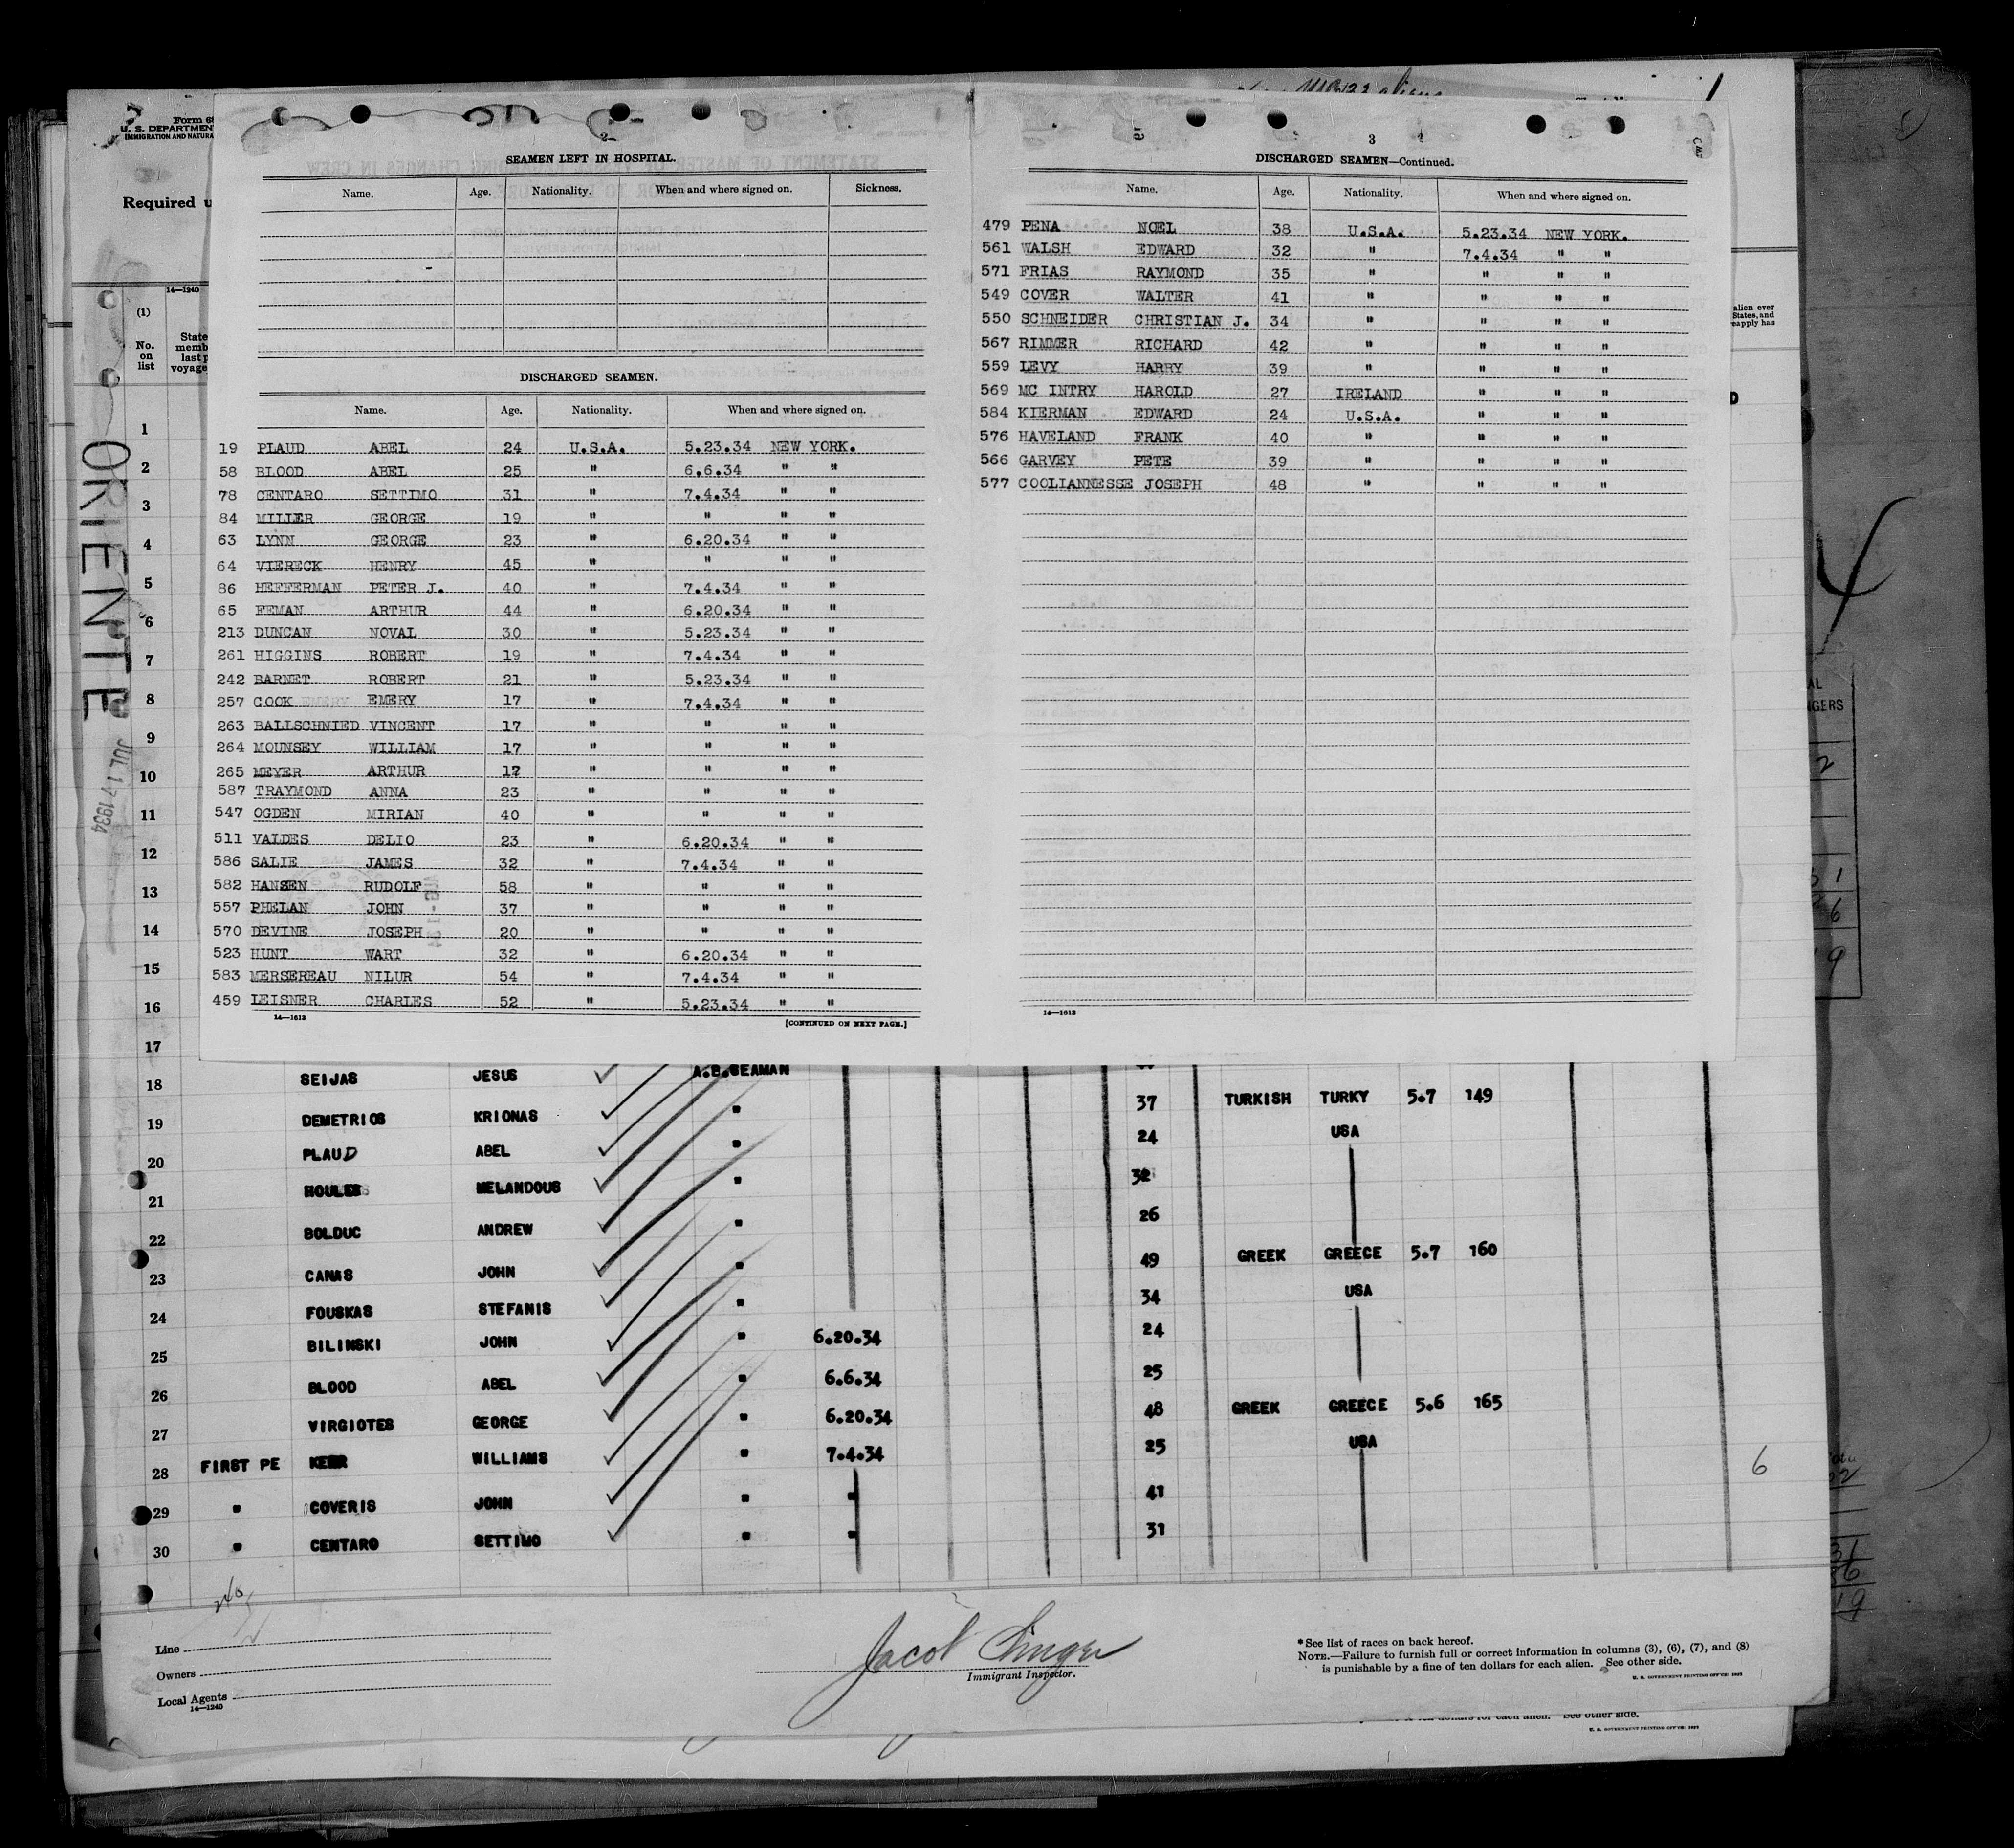 2
SEAMEN LEFT IN HOSPITAL.
Name. Age. Nationality. When and where signed on. Sickness.
DISCHARGED SEAMEN.
Name. Age. Nationality. When and where signed on.
19 PLAUD ABEL 24 U.S.A. 5.23.34 NEW YORK.
58 BLOOD ABEL 25 " 6.6.34 " "
78 CENTARO SETTIMO 31 " 7.4.34 " "
84 MILLER GEORGE 19 " " " "
63 LYNN GEORGE 23 " 6.20.34 " "
64 VIERECK HENRY 45 " " " "
86 HEFFERMAN PETER J. 40 " 7.4.34 " "
65 FEMAN ARTHUR 44 " 6.20.34 " "
213 DUNCAN NOVAL 30 " 5.23.34 " "
261 HIGGINS ROBERT 19 " 7.4.34 " "
242 BARNET ROBERT 21 " 5.23.34 " "
257 COOK EMERY 17 " 7.4.34 " "
263 BALLSCHNIED VINCENT 17 " " " "
264 MOUNSEY WILLIAM 17 " " " "
265 MEYER ARTHUR 17 " " " "
587 TRAYMOND ANNA 23 " " " "
547 OGDEN MIRIAN 40 " " " "
511 VALDES DELIO 23 " 6.20.34 " "
586 SALIE JAMES 32 " 7.4.34 " "
582 HANSEN RUDOLF 58 " " " "
557 PHELAN JOHN 37 " " " "
570 DEVINE JOSEPH 20 " " " "
523 HUNT WART 32 " 6.20.34 " "
583 MERSEREAU NILUR 54 " 7.4.34 " "
459 LEISNER CHARLES 52 " 5.23.34 " "
14—1613 [CONTINUED ON NEXT PAGE.]
3
DISCHARGED SEAMEN—Continued.
Name. Age. Nationality. When and where signed on.
479 PENA NOEL 38 U.S.A. 5.23.34 NEW YORK.
561 WALSH EDWARD 32 " 7.4.34 " "
571 FRIAS RAYMOND 35 " " " "
549 COVER WALTER 41 " " " "
550 SCHNEIDER CHRISTIAN J. 34 " " " "
567 RIMMER RICHARD 42 " " " "
559 LEVY HARRY 39 " " " "
569 MC INTRY HAROLD 27 IRELAND " " "
584 KIERMAN EDWARD 24 U.S.A. " " "
576 HAVELAND FRANK 40 " " " "
566 GARVEY PETE 39 " " " "
577 COOLIANNESSE JOSEPH 48 " " " "
14—1613
Form 6
U. S. DEPARTMENT
IMMIGRATION AND NATURA
Required u
14—1240
(1)
No. on list
State
memb
last p
voyage
alien ever
States, and
reapply has
ORIENTE
JUL 17 1934
1
2
3
4
5
6
7
8
9
10
11
12
13
14
15
16
17
18 SEIJAS JESUS A.B.SEAMAN
19 DEMETRIOS KRIONAS " 37 TURKISH TURKY 5.7 149
20 PLAUD ABEL " 24 USA
21 MELANDOUS " 32
22 BOLDUC ANDREW " 26
23 CANAS JOHN " 49 GREEK GREECE 5.7 160
24 FOUSKAS STEFANIS " 34 USA
25 BILINSKI JOHN " 6.20.34 24
26 BLOOD ABEL " 6.6.34 25
27 VIRGIOTES GEORGE " 6.20.34 48 GREEK GREECE 5.6 165
28 FIRST PE KERR WILLIAMS " 7.4.34 25 USA
29 " COVERIS JOHN " " 41
30 " CENTARO SETTIMO " " 31
6
Line
Owners
Local Agents
14—1240
Jacob
Immigrant Inspector.
*See list of races on back hereof.
NOTE.—Failure to furnish full or correct information in columns (3), (6), (7), and (8)
is punishable by a fine of ten dollars for each alien. See other side.
U. S. GOVERNMENT PRINTING OFFICE
See other side.